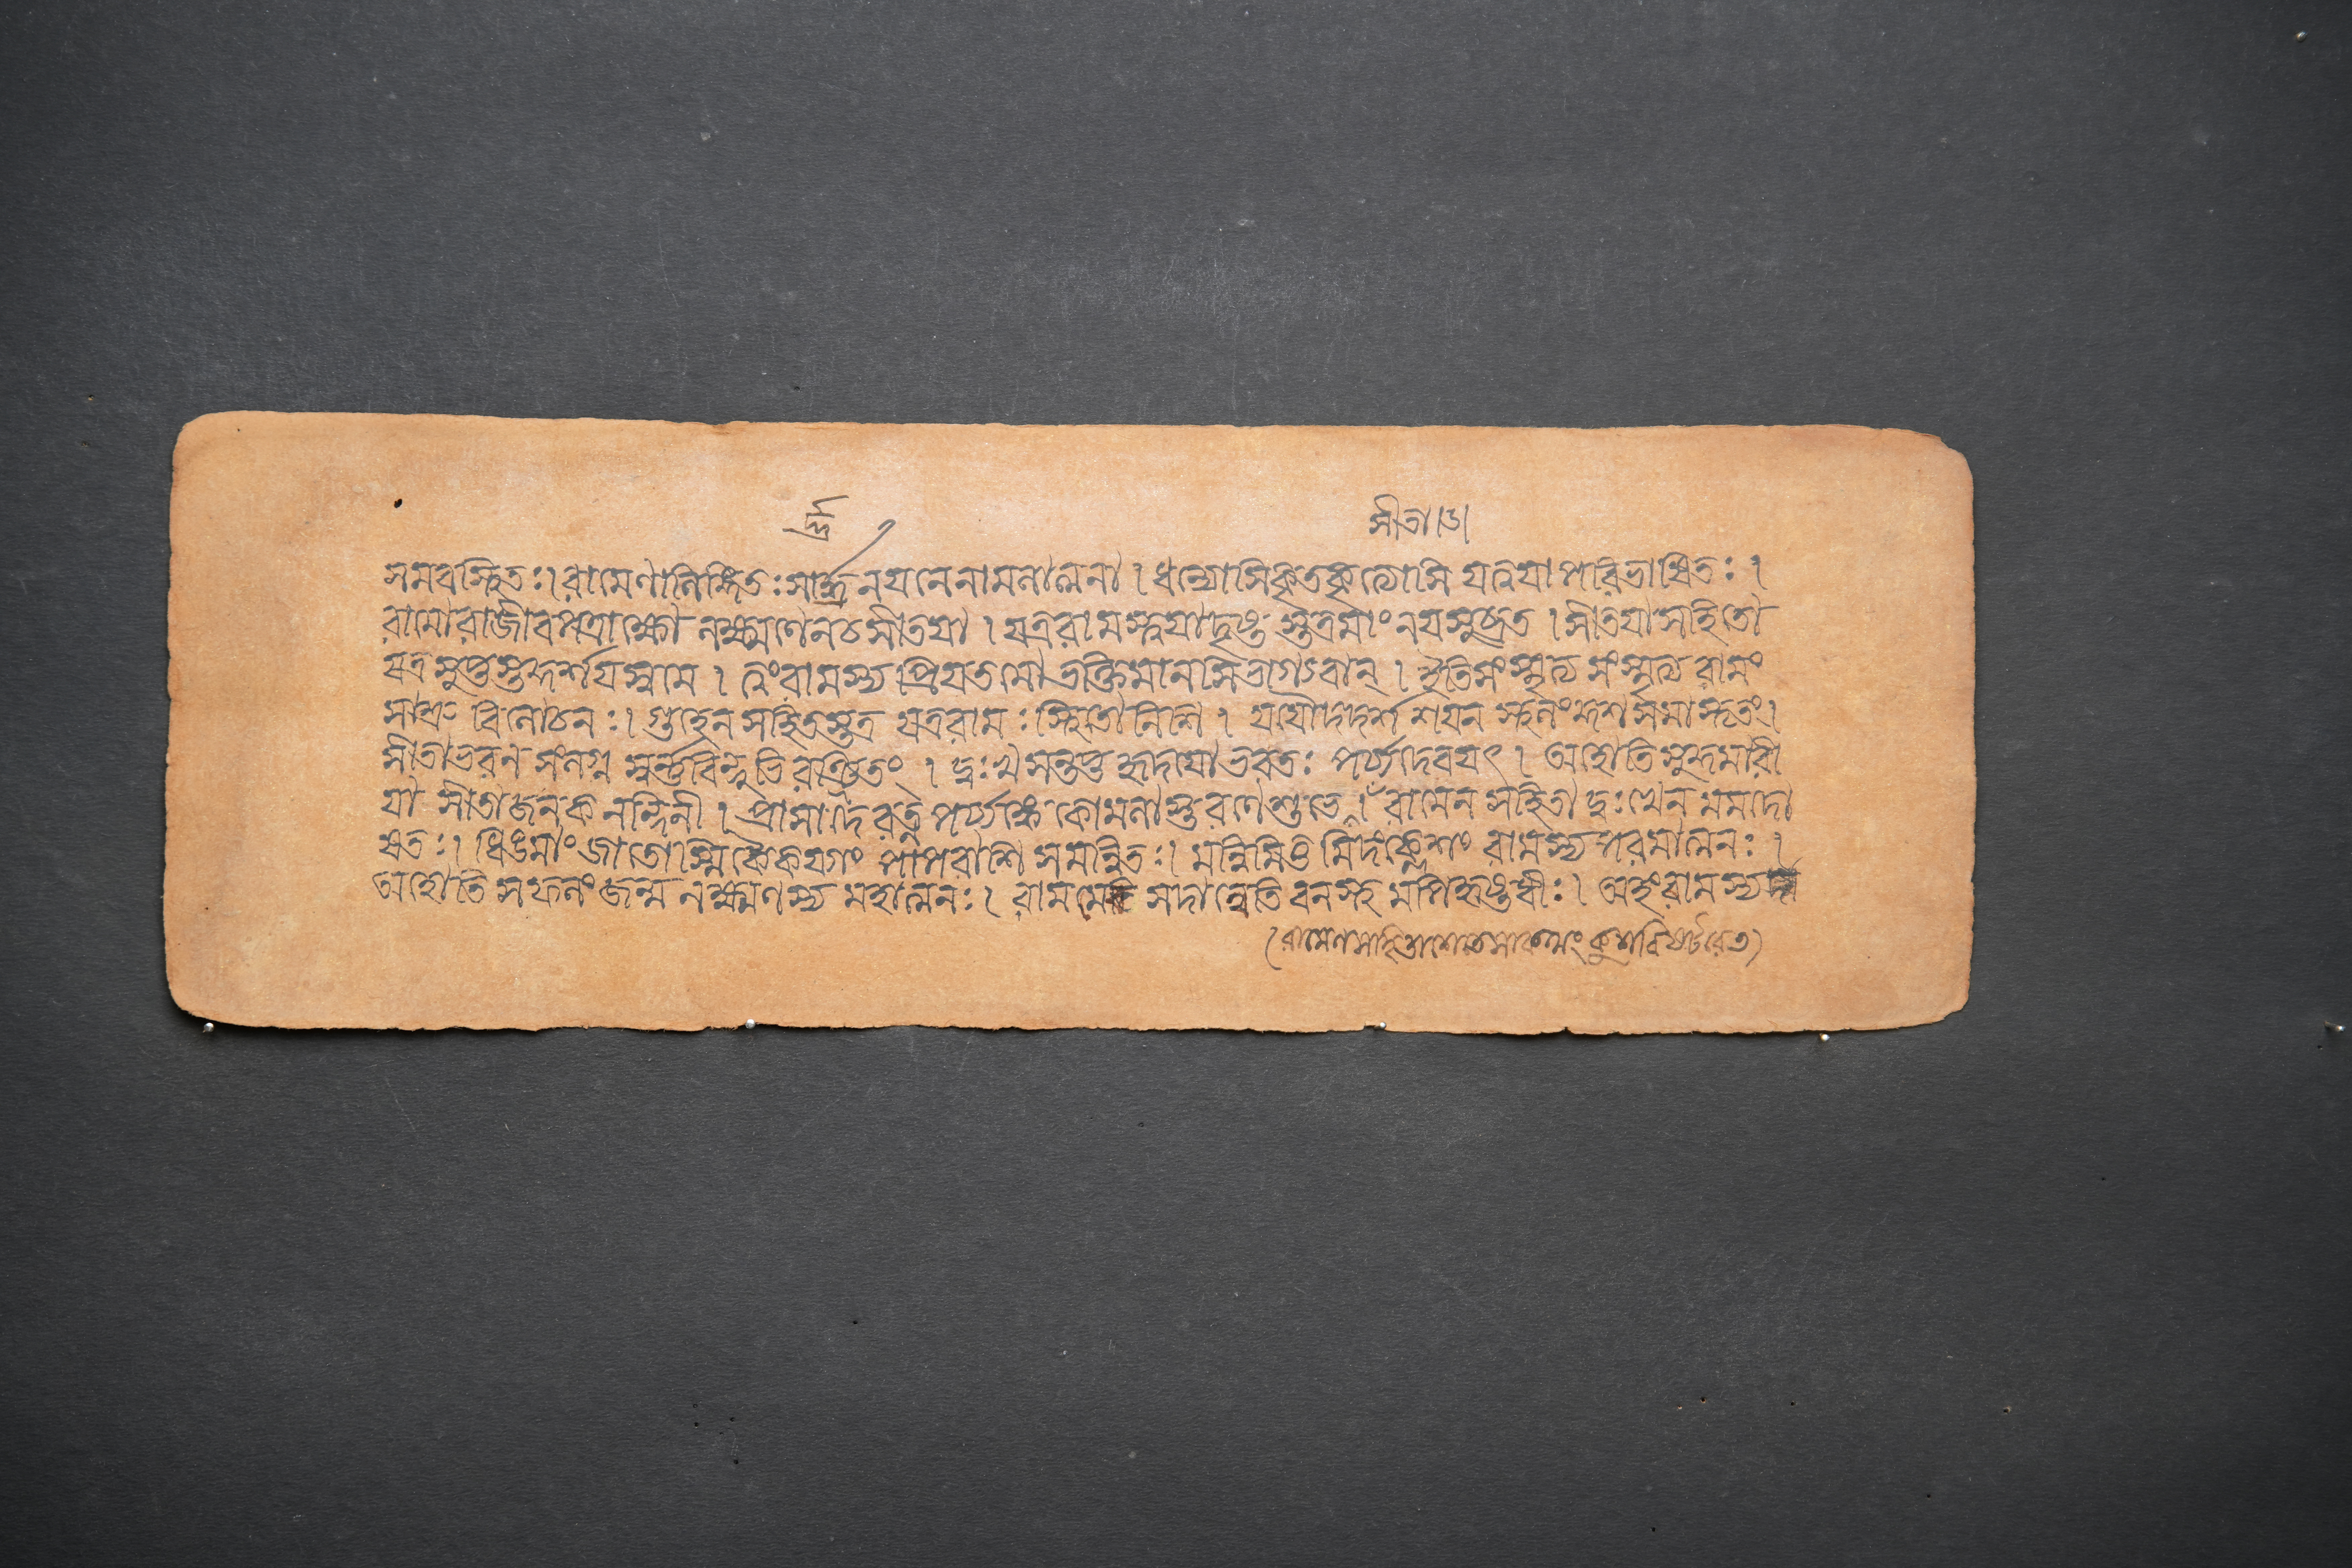 র্দ্র সীতা।৬।
সমবস্থিতঃ। রামেণালিঙ্গিতঃ সার্দ্রনযনেনামলাত্মনা। ধন্যোসি কৃতকৃত্যোসি যত্ত্বযা পরিভাষিতঃ।
রামো রাজীবপত্রাক্ষো লক্ষ্মণেন চ সীতযা। যত্র রামস্ত্বযা দৃষ্ট স্তত্র মাং নয সুব্রত। সীতযা সহিতো
যত্র সুপ্তস্তদ্দর্শযস্বমে। ত্বং রামস্য প্রিযতমো ভক্তিমানসি ভাগ্যবান্। ইতি সংস্মৃত্য সংস্মৃত্য রামং
সাশ্রু বিলোচনঃ। গুহেন সহিতস্তত্র যত্র রামঃ স্থিতো নিশি। যযৌ দদর্শ শযন স্থলং কুশ সমাস্তৃতং।
সীতাভরণ সংলগ্ন স্বর্ণ্ণবিন্দুভি রর্চ্চিতং। দুঃখ সন্তপ্ত হৃদযো ভরতঃ পর্য্যদেবযৎ। অহোতি সুকুমারী
যা সীতা জনক নন্দিনী। প্রাসাদে রত্ন পর্য্যঙ্কে কোমলাস্তরণে শুভে। রামেন সহিতা দুঃখেন মমদো
ষতঃ। ধিঙমাং জাতোস্মি কৈকেয্যাং পাপরাশি সমন্বিতঃ। মন্নিমিত্ত মিদং ক্লেশং রামস্য পরমাত্মনঃ।
অহোতি সফলং জন্ম লক্ষ্মণস্য মহাত্মনঃ। রামমেব সদান্বেতি বনস্থ মপি হৃষ্টধীঃ। অহং রামস্য দা
(রামেণ সহিতা শেতে সা কথং কুশবিষ্টরে)